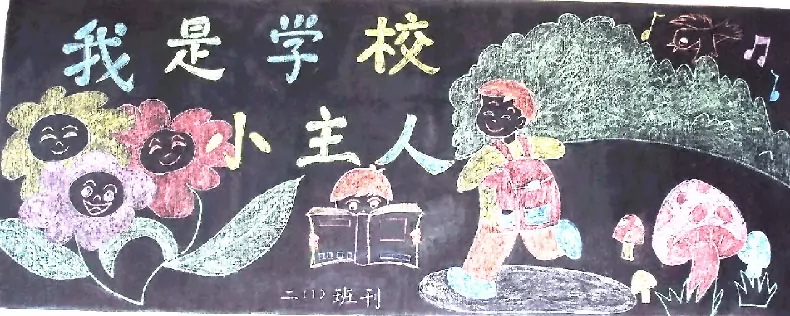 我是学校
小主人
二(1)班刊